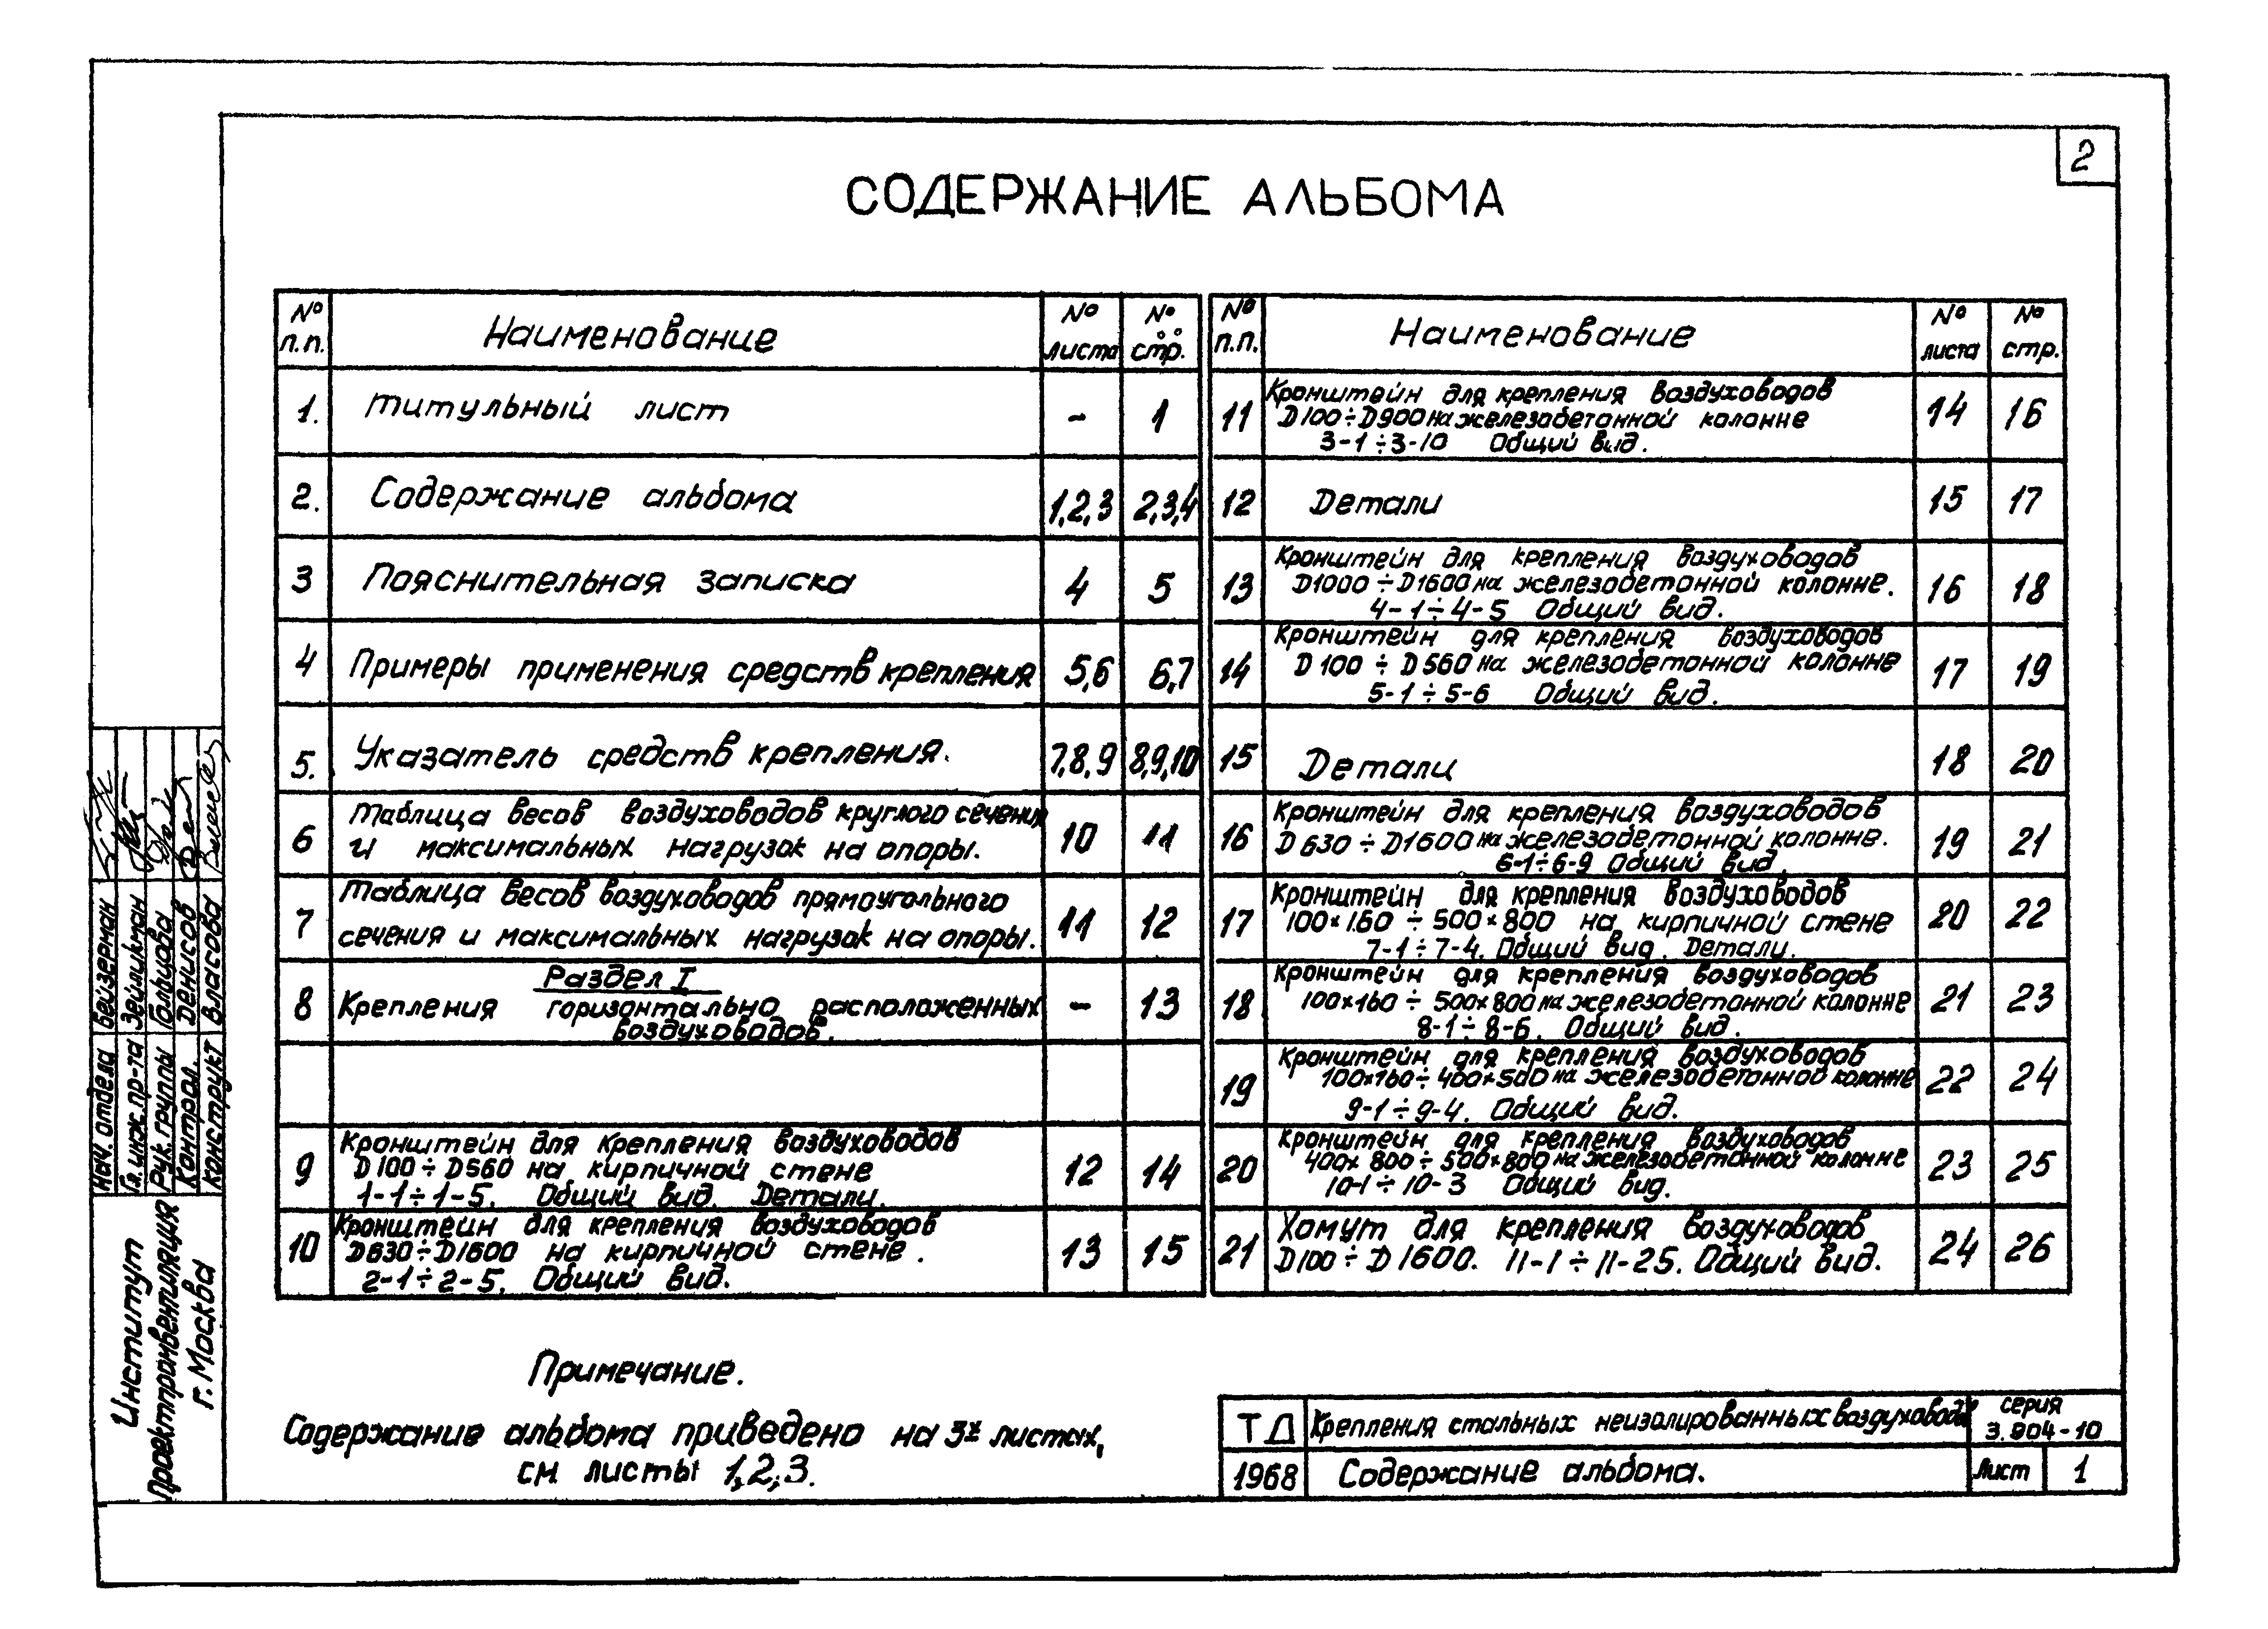 2
СОДЕРЖАНИЕ АЛЬБОМА
№ п.п. Наименование № листа №№ стр.
1. Титульный лист - 1
2. Содержание альбома 1,2,3 2,3,4
3 Пояснительная записка 4 5
4 Примеры применения средств крепления 5,6 6,7
5. Указатель средств крепления. 7,8,9 8,9,10
6 Таблица весов воздуховодов круглого сечения
и максимальных нагрузок на опоры. 10 11
7 Таблица весов воздуховодов прямоугольного
сечения и максимальных нагрузок на опоры. 11 12
Раздел I
8 Крепления горизонтально расположенных - 13
воздуховодов.
Кронштейн для крепления воздуховодов
9 D100÷D560 на кирпичной стене 12 14
1-1÷1-5. Общий вид. Детали.
Кронштейн для крепления воздуховодов
10 D630÷D1600 на кирпичной стене. 13 15
2-1÷2-5. Общий вид.
№ п.п. Наименование № листа № стр.
Кронштейн для крепления воздуховодов
11 D100÷D900 на железобетонной колонне 14 16
3-1÷3-10 Общий вид.
12 Детали 15 17
Кронштейн для крепления воздуховодов
13 D1000÷D1600 на железобетонной колонне. 16 18
4-1÷4-5 Общий вид.
Кронштейн для крепления воздуховодов
14 D100÷D560 на железобетонной колонне 17 19
5-1÷5-6 Общий вид.
15 Детали 18 20
Кронштейн для крепления воздуховодов
16 D630÷D1600 на железобетонной колонне. 19 21
6-1÷6-9 Общий вид.
Кронштейн для крепления воздуховодов
17 100×160÷500×800 на кирпичной стене 20 22
7-1÷7-4. Общий вид. Детали.
Кронштейн для крепления воздуховодов
18 100×160÷500×800 на железобетонной колонне 21 23
8-1÷8-6. Общий вид.
Кронштейн для крепления воздуховодов
19 100×160÷400×500 на железобетонной колонне 22 24
9-1÷9-4. Общий вид.
Кронштейн для крепления воздуховодов
20 400×800÷500×800 на железобетонной колонне 23 25
10-1÷10-3 Общий вид.
Хомут для крепления воздуховодов
21 D100÷D1600. 11-1÷11-25. Общий вид. 24 26
Примечание.
Содержание альбома приведено на 3х листах,
см листы 1,2,3.
ТД Крепления стальных неизолированных воздуховодов серия 3.904-10
1968 Содержание альбома. Лист 1
Нач. отдела Бейзерман
Гл. инж. пр-та Зейликман
Рук. группы Гольцова
Контрол. Денисов
Конструкт Власова
Институт
Проектпромвентиляция
г. Москва